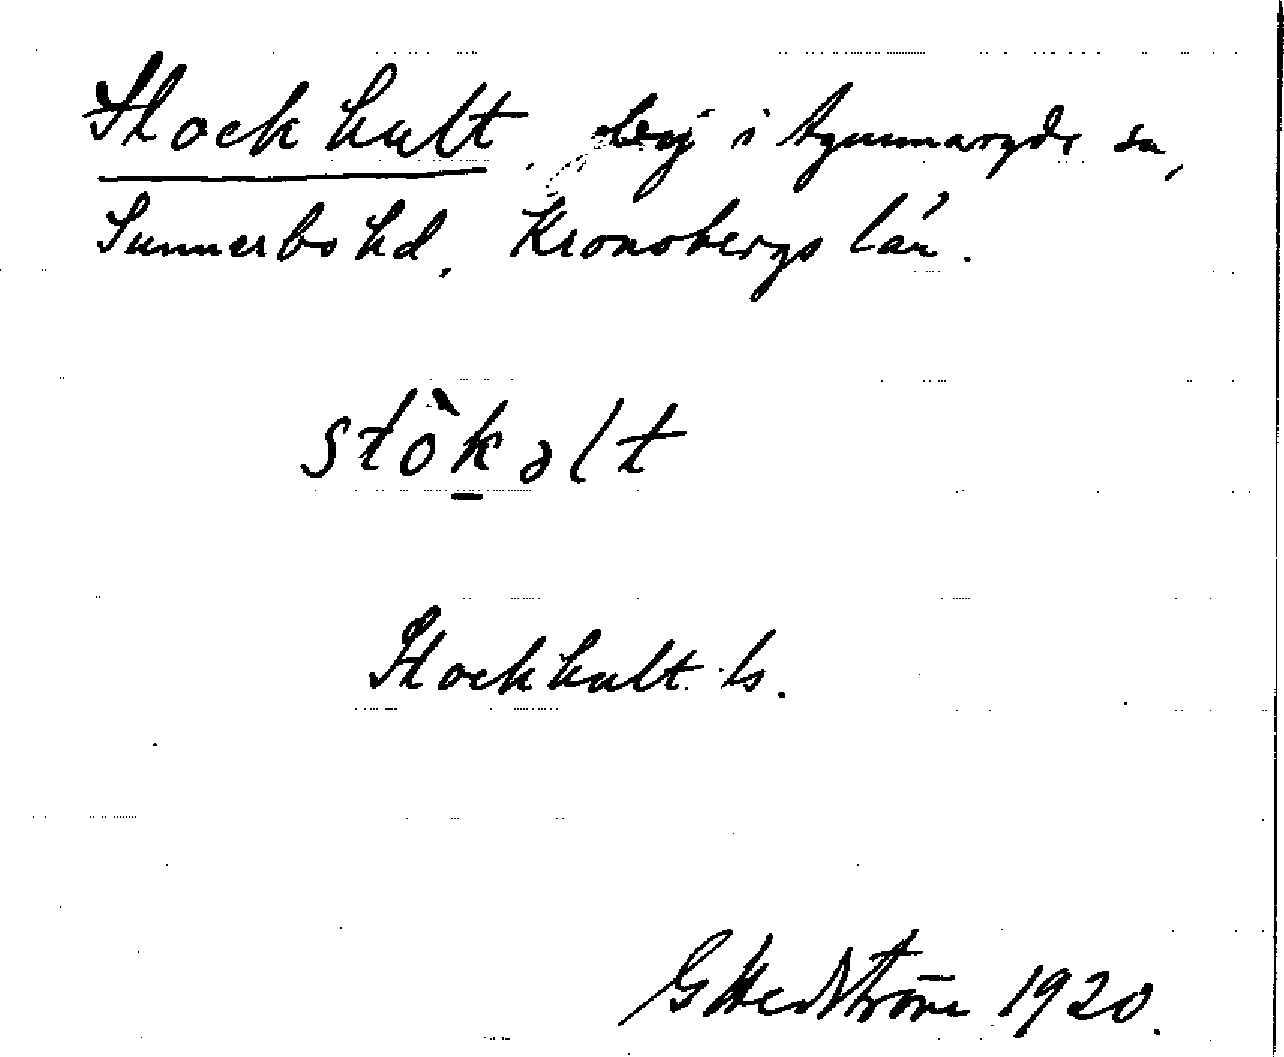 Stockhult, beg i Agunnaryds sn,
Sunnerbo hd, Kronobergs län.
stòkəlt
Stockhult ls.
G Hedström 1920.